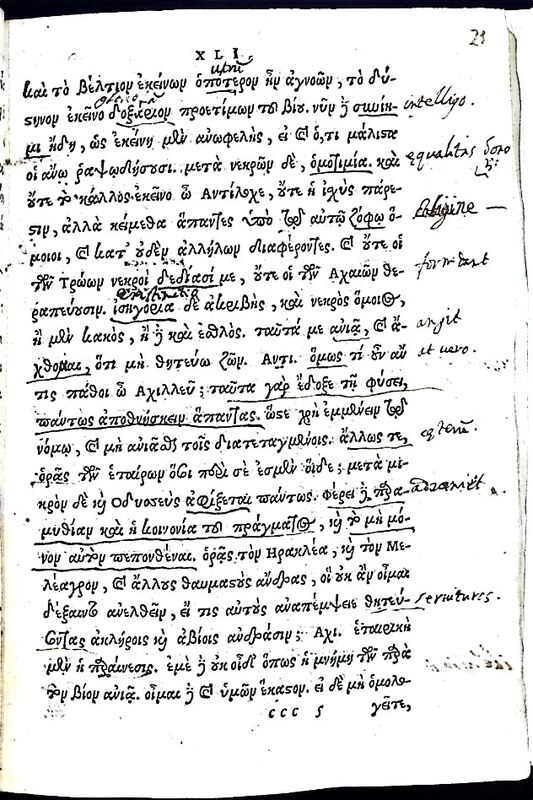 21
XLI.
utrū
καὶ τὸ βέλτιον ἐκείνων ὁπότερον ἦν ἀγνοῶν, τὸ δύ-
στηνον ἐκεῖνο δοξάριον προετίμων τοῦ βίου. νῦν ἢ συνίη- intelligo.
μι ἤδη, ὡς ἐκείνη μὲν ἀνωφελὴς, εἰ καὶ ὅ,τι μάλιστα
οἱ ἄνω ῥαψῳδήσουσι. μετὰ νεκρῶν δὲ, ὁμοτιμία. καὶ equalitas
οὔτε τὸ κάλλος ἐκεῖνο ὦ Ἀντίλοχε, οὔτε ἡ ἰχὺς πάρε-
στιν, ἀλλὰ κείμεθα ἅπαντες ὑπὸ τῷ αὐτῷ ζόφῳ ὅ-
μοιοι, καὶ κατ' οὐδὲν ἀλλήλων διαφέροντες. καὶ οὔτε οἱ
τῶν Τρώων νεκροὶ δεδίασί με, οὔτε οἱ τῶν Ἀχαιῶν θε-
ραπεύουσιν. ἰσηγορία δὲ ἀκριβὴς, καὶ νεκρὸς ὅμοιος,
ἢ μὲν κακὸς, ἢ ἢ καὶ ἐσθλός. ταῦτά με ἀνιᾷ, καὶ ἄ- angit
χθομαι, ὅτι μὴ θητεύω ζῶν. Αντι. ὅμως τί οὖν ἄν at uero.
τις πάθοι ὦ Αχιλλεῦ; ταῦτα γὰρ ἔδοξε τῇ φύσει,
πάντως ἀποθνήσκειν ἅπαντας. ὥστε χρὴ ἐμμένειν τῷ
νόμῳ, καὶ μὴ ἀνιᾶσθαι τοῖς διατεταγμένοις. ἄλλως τε,
ὁρᾷς τῶν ἑταίρων ὅσοι περὶ σὲ ἐσμὲν οἵδε; μετὰ μι-
κρὸν δὲ καὶ Οδυσσεὺς ἀφίξεται πάντως. φέρει ἢ παρα-
μυθίαν καὶ ἡ κοινωνία τοῦ πράγματος, καὶ τὸ μὴ μό-
νον αὐτὸν πεπονθέναι. ὁρᾷς τὸν Ηρακλέα, καὶ τὸν Με-
λέαγρον, καὶ ἄλλους θαυμαστοὺς ἄνδρας, οἳ οὐκ ἂν οἶμαι
δέξαιντο ἀνελθεῖν, εἴ τις αὐτοὺς ἀναπέμψειε θητεύ- seruituros.
σοντας ἀκλήροις καὶ ἀβίοις ἀνδράσιν; Αχι. ἑταιρικὴ
μὲν ἡ παραίνεσις. ἐμὲ ἢ οὐκ οἶδ' ὅπως ἡ μνήμη τῶν παρὰ
τὸν βίον ἀνιᾷ. οἶμαι ἢ καὶ ὑμῶν ἕκαστον. εἰ δὲ μὴ ὁμολο-
ccc 5 γεῖτε,